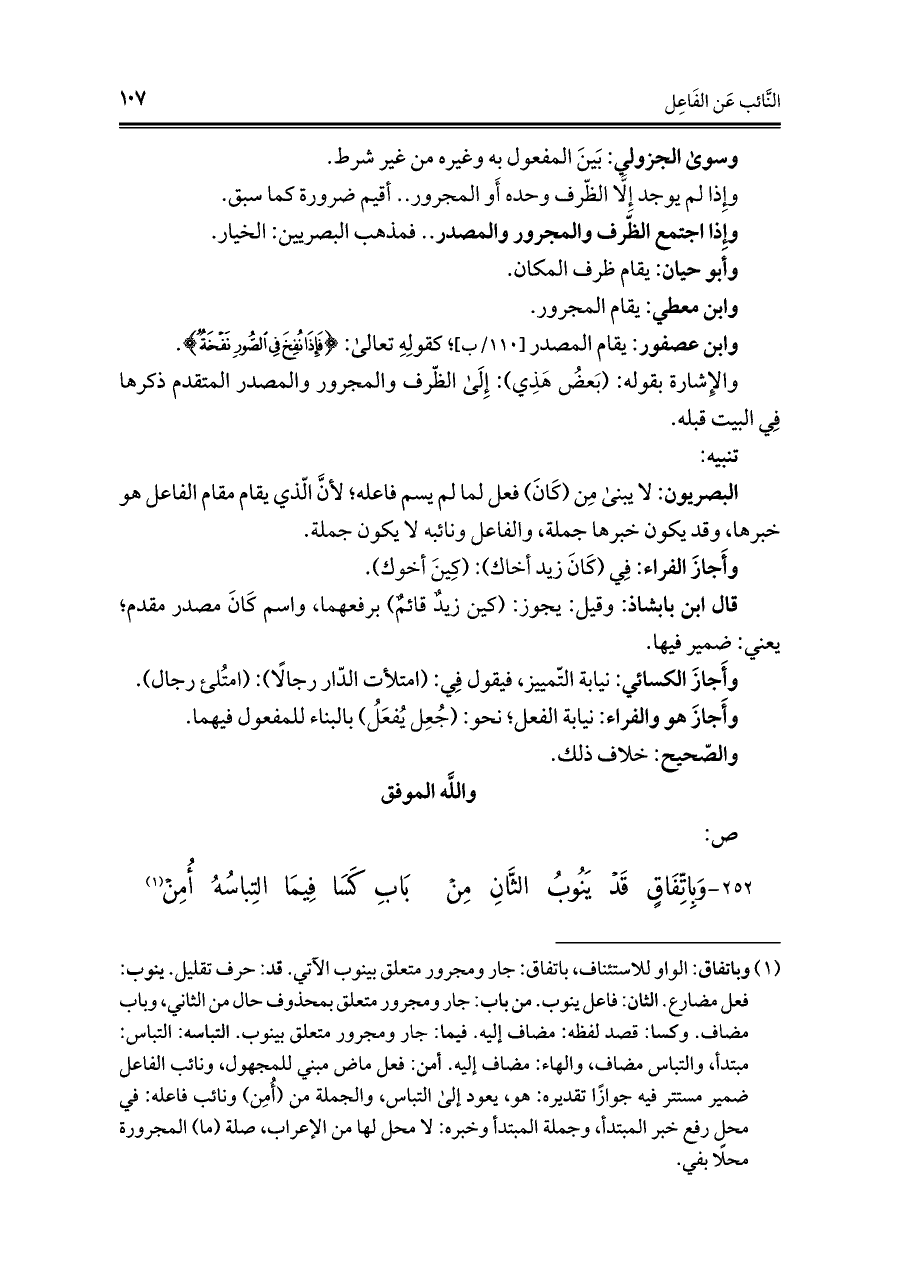 النَّائب عَن الفَاعِل ١٠٧
وسوىٰ الجزولي: بَينَ المفعول به وغيره من غير شرط.
وإِذا لم يوجد إِلَّا الظّرف وحده أَو المجرور.. أقيم ضرورة كما سبق.
وإِذا اجتمع الظّرف والمجرور والمصدر.. فمذهب البصريين: الخيار.
وأبو حيان: يقام ظرف المكان.
وابن معطي: يقام المجرور.
وابن عصفور: يقام المصدر [١١٠/ ب]؛ كقولِهِ تعالىٰ: ﴿فَإِذَا نُفِخَ فِي ٱلصُّورِ نَفْخَةٌ﴾.
والإِشارة بقوله: (بَعضُ هَذِي): إِلَىٰ الظّرف والمجرور والمصدر المتقدم ذكرها
فِي البيت قبله.
تنبيه:
البصريون: لا يبنىٰ مِن (كَانَ) فعل لما لم يسم فاعله؛ لأنَّ الّذي يقام مقام الفاعل هو
خبرها، وقد يكون خبرها جملة، والفاعل ونائبه لا يكون جملة.
وأَجازَ الفراء: فِي (كَانَ زيد أخاك): (كِينَ أخوك).
قال ابن بابشاذ: وقيل: يجوز: (كين زيدٌ قائمٌ) برفعهما، واسم كَانَ مصدر مقدم؛
يعني: ضمير فيها.
وأَجازَ الكسائي: نيابة التّمييز، فيقول فِي: (امتلأت الدّار رجالًا): (امتُلئ رجال).
وأَجازَ هو والفراء: نيابة الفعل؛ نحو: (جُعِل يُفعَلُ) بالبناء للمفعول فيهما.
والصّحيح: خلاف ذلك.
واللَّه الموفق
ص:
٢٥٢-وَبِاتِّفَاقٍ قَدْ يَنُوبُ الثَّانِ مِنْ بَابِ كَسَا فِيمَا التِباسُهُ أُمِنْ(١)
(١) وباتفاق: الواو للاستئناف، باتفاق: جار ومجرور متعلق بينوب الآتي. قد: حرف تقليل. ينوب:
فعل مضارع. الثان: فاعل ينوب. من باب: جار ومجرور متعلق بمحذوف حال من الثاني، وباب
مضاف. وكسا: قصد لفظه: مضاف إليه. فيما: جار ومجرور متعلق بينوب. التباسه: التباس:
مبتدأ، والتباس مضاف، والهاء: مضاف إليه. أمن: فعل ماض مبني للمجهول، ونائب الفاعل
ضمير مستتر فيه جوازًا تقديره: هو، يعود إلىٰ التباس، والجملة من (أُمِن) ونائب فاعله: في
محل رفع خبر المبتدأ، وجملة المبتدأ وخبره: لا محل لها من الإعراب، صلة (ما) المجرورة
محلًا بفي.